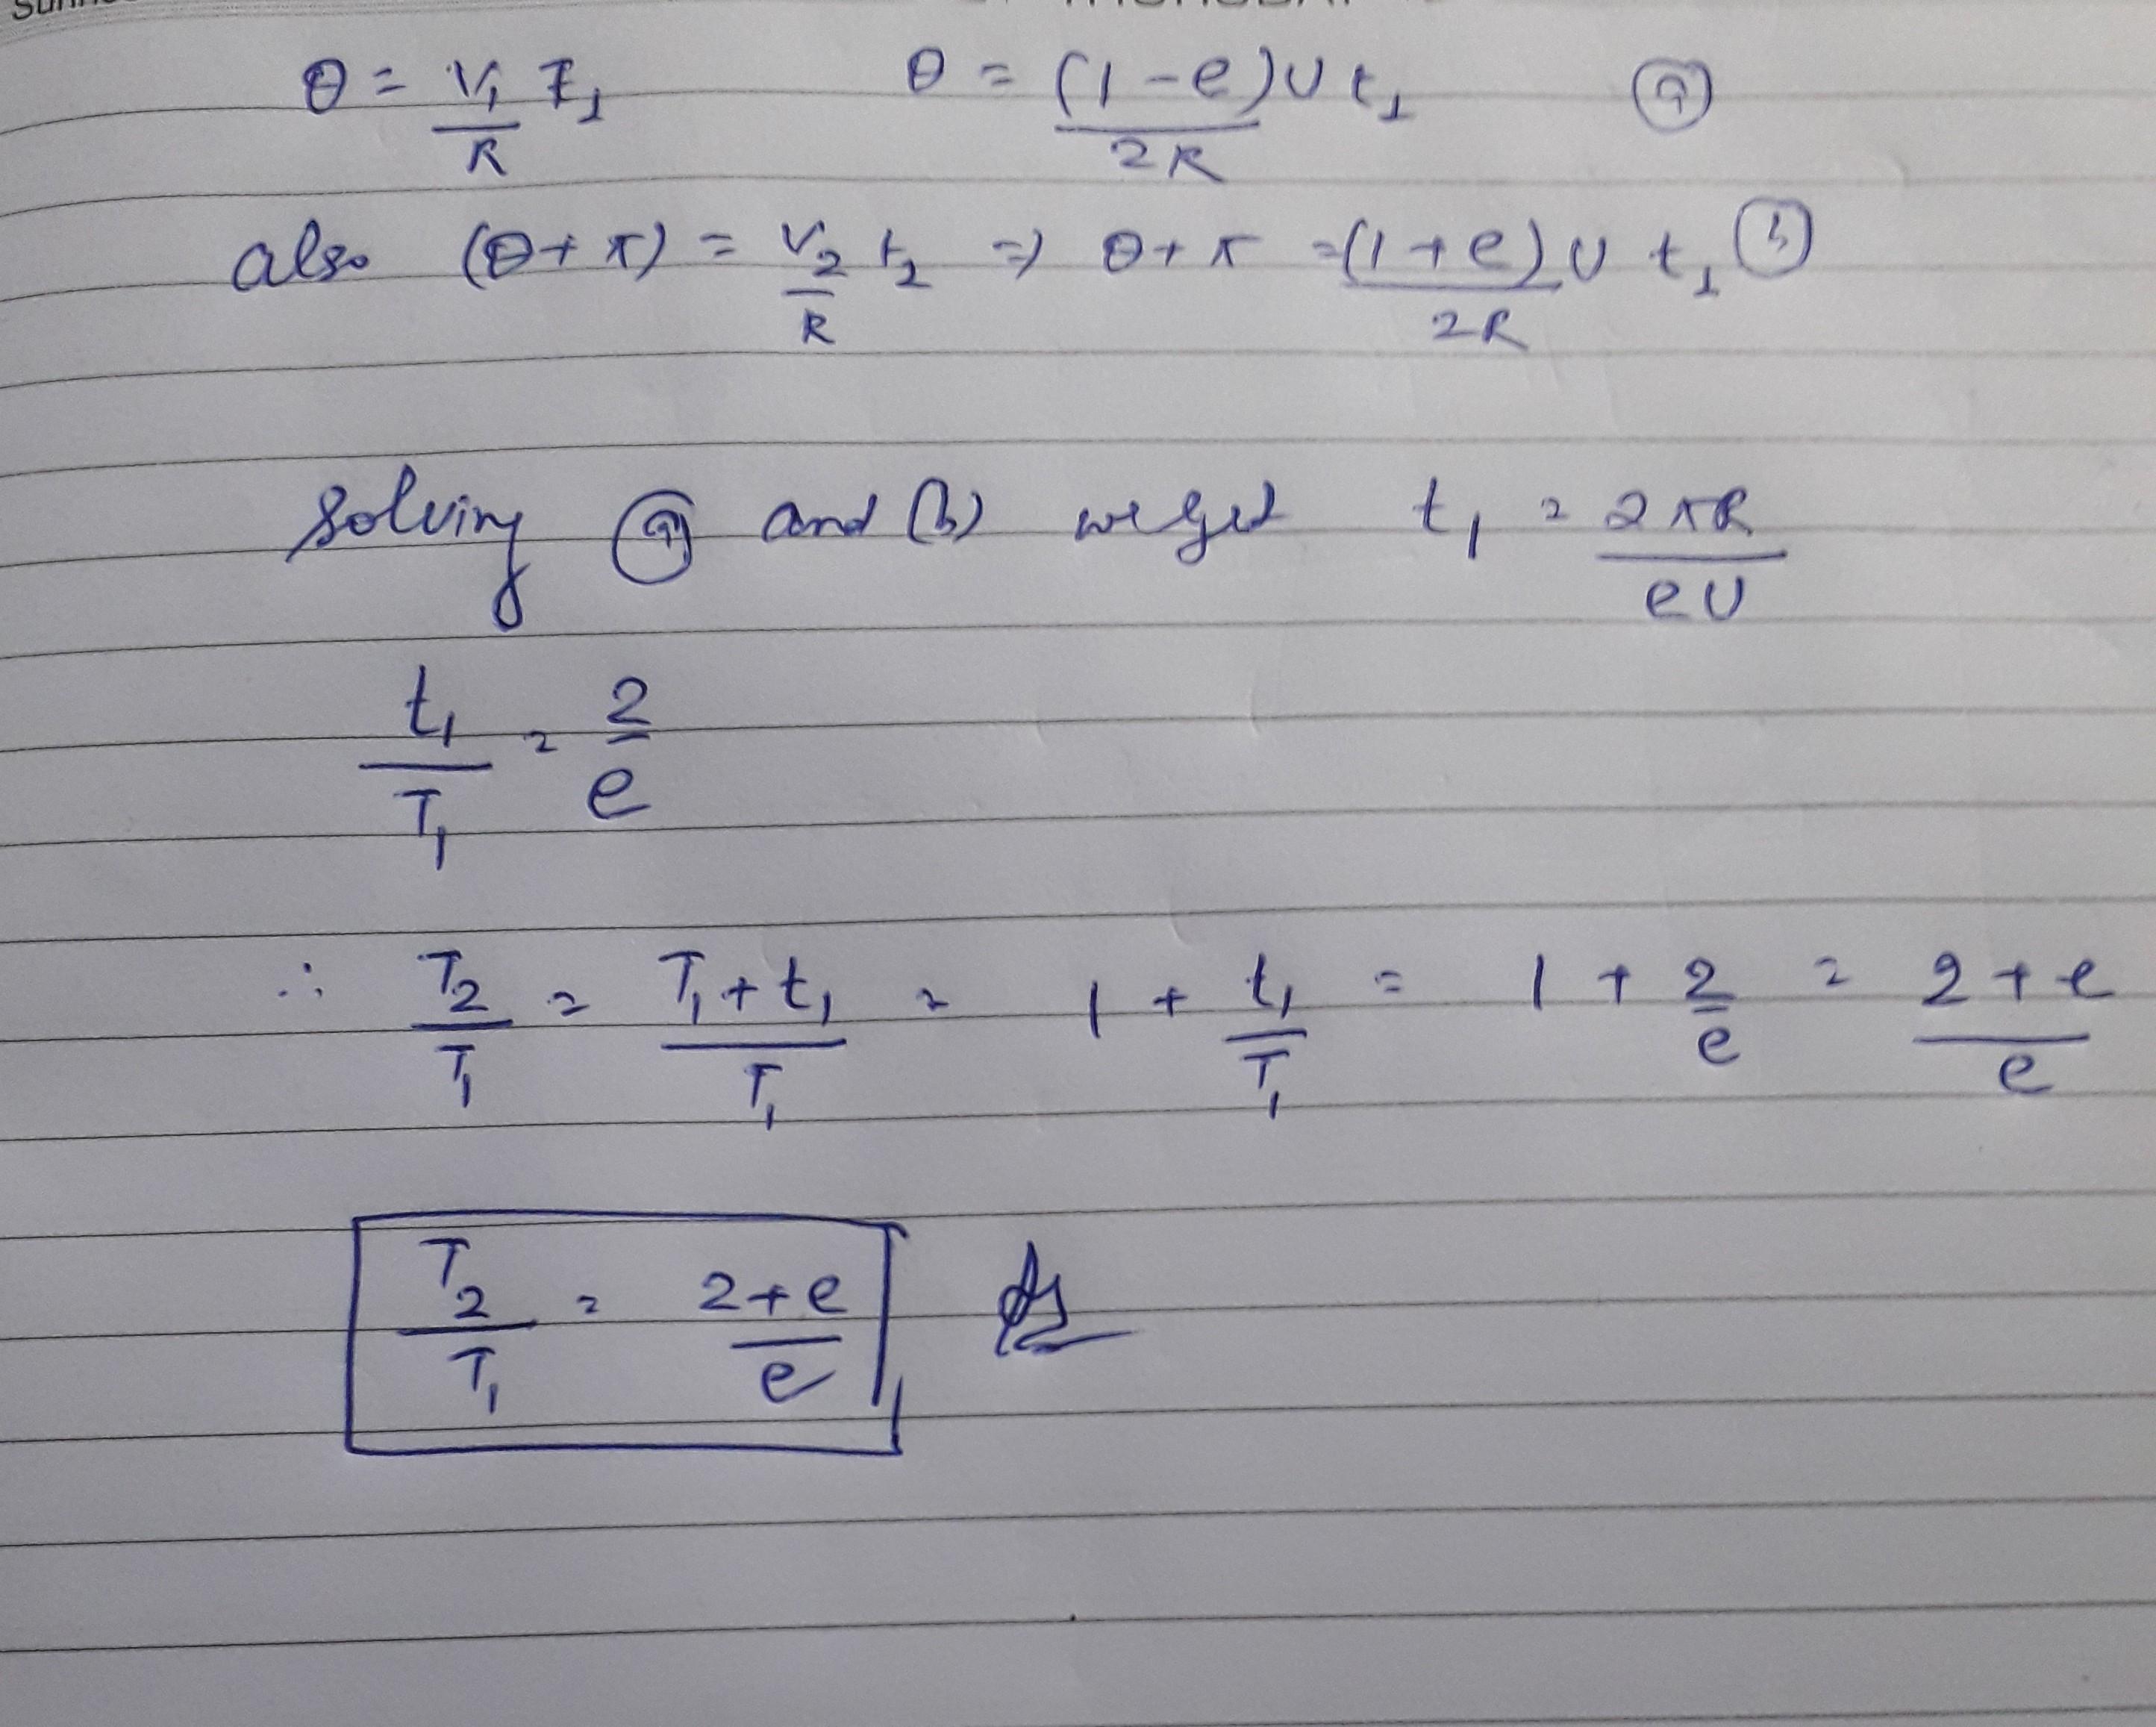 θ = V₁/R t₁   θ = (1-e)U t₁/2R   (a)
also (θ+π) = V₂/R t₂ ⇒ θ+π = (1+e)U t₁/2R (b)
Solving (a) and (b) we get t₁ = 2πR/eU
t₁/T₁ = 2/e
∴ T₂/T₁ = T₁+t₁/T₁ = 1 + t₁/T₁ = 1 + 2/e = 2+e/e
T₂/T₁ = 2+e/e